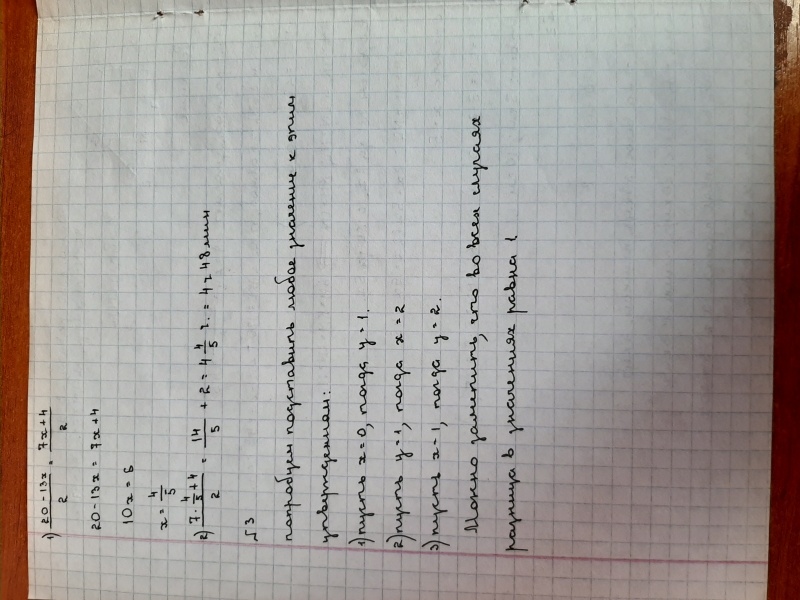 1) (20-13x)/2 = (7x+4)/2
20-13x = 7x+4
10x = 8
x = 4/5
2) (7·4/5+4)/2 = 14/5 + 2 = 4 4/5 г. = 4г 48 мин
√3
попробуем подставить любое значение к этим
утверждениям:
1) пусть x=0, тогда y=1.
2) пусть y=1, тогда x=2
3) пусть x=1, тогда y=2.
Можно заметить, что во всех случаях
разница в значениях равна 1